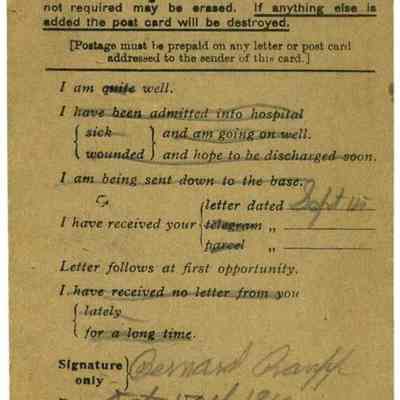 not required may be erased. If anything else is
added the post card will be destroyed.
[Postage must be prepaid on any letter or post card
addressed to the sender of this card.]
I am quite well.
I have been admitted into hospital
{ sick } and am going on well.
{ wounded } and hope to be discharged soon.
I am being sent down to the base.
I have received your { letter dated Sept
telegram „
parcel „
Letter follows at first opportunity.
I have received no letter from you
{ lately
for a long time.
Signature only } Bernard